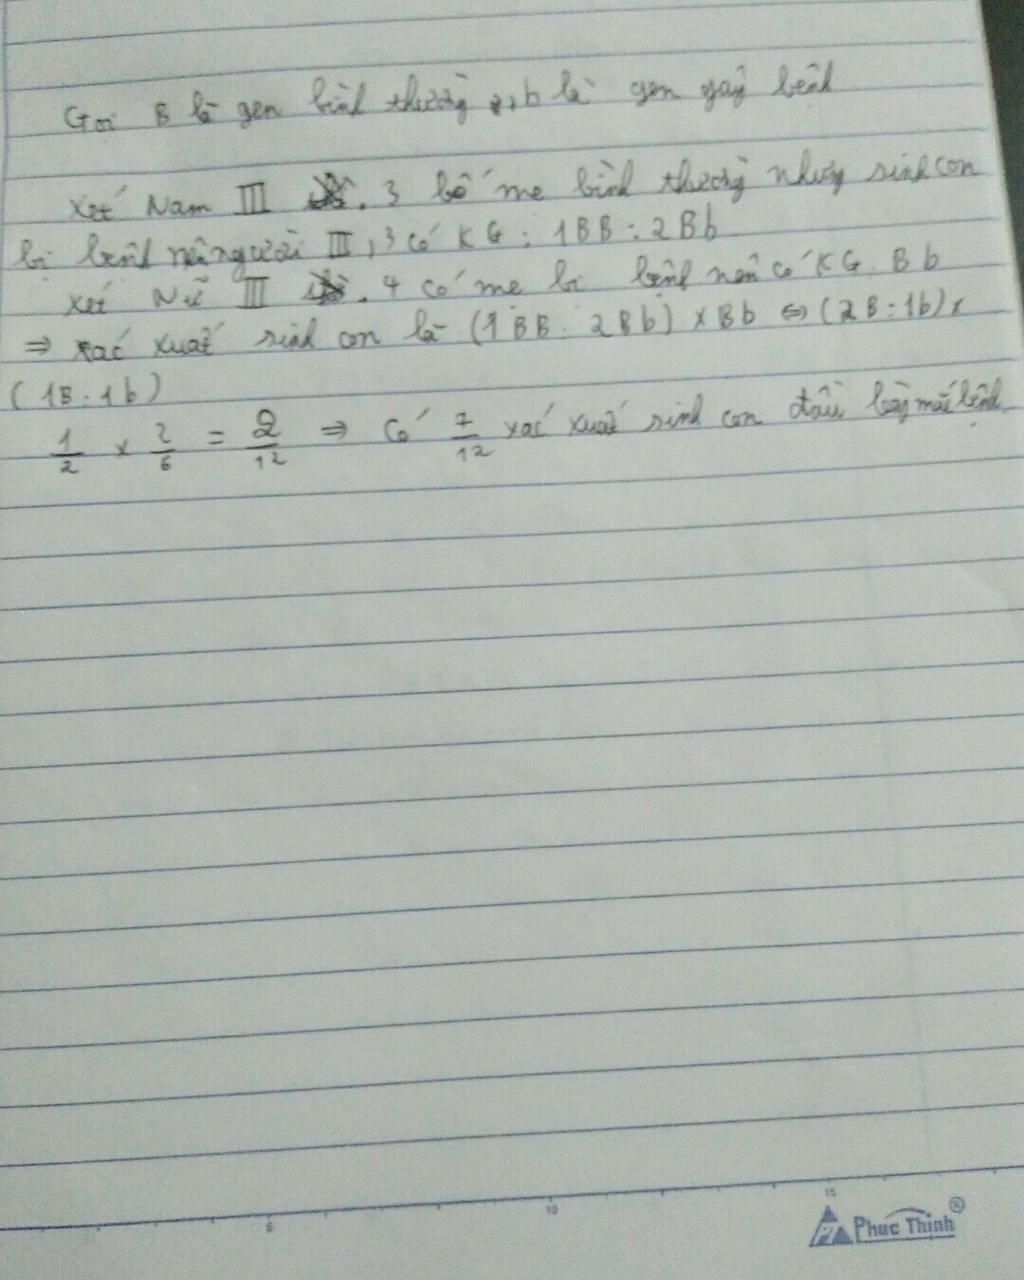 Gọi B là gen bình thường, b là gen gây bệnh
Xét Nam III .3 bố mẹ bình thường nhưng sinh con
bị bệnh nên người III,3 có KG : 1BB : 2Bb
Xét Nữ III .4 có mẹ bị bệnh nên có KG. Bb
⇒ xác xuất sinh con là (1BB : 2Bb) x Bb ⇔ (2B : 1b) x
(1B : 1b)
1/2 x 2/6 = 2/12 ⇒ Có 7/12 xác xuất sinh con đầu lòng mắc bệnh
5 10 15
Phuc Thinh ®